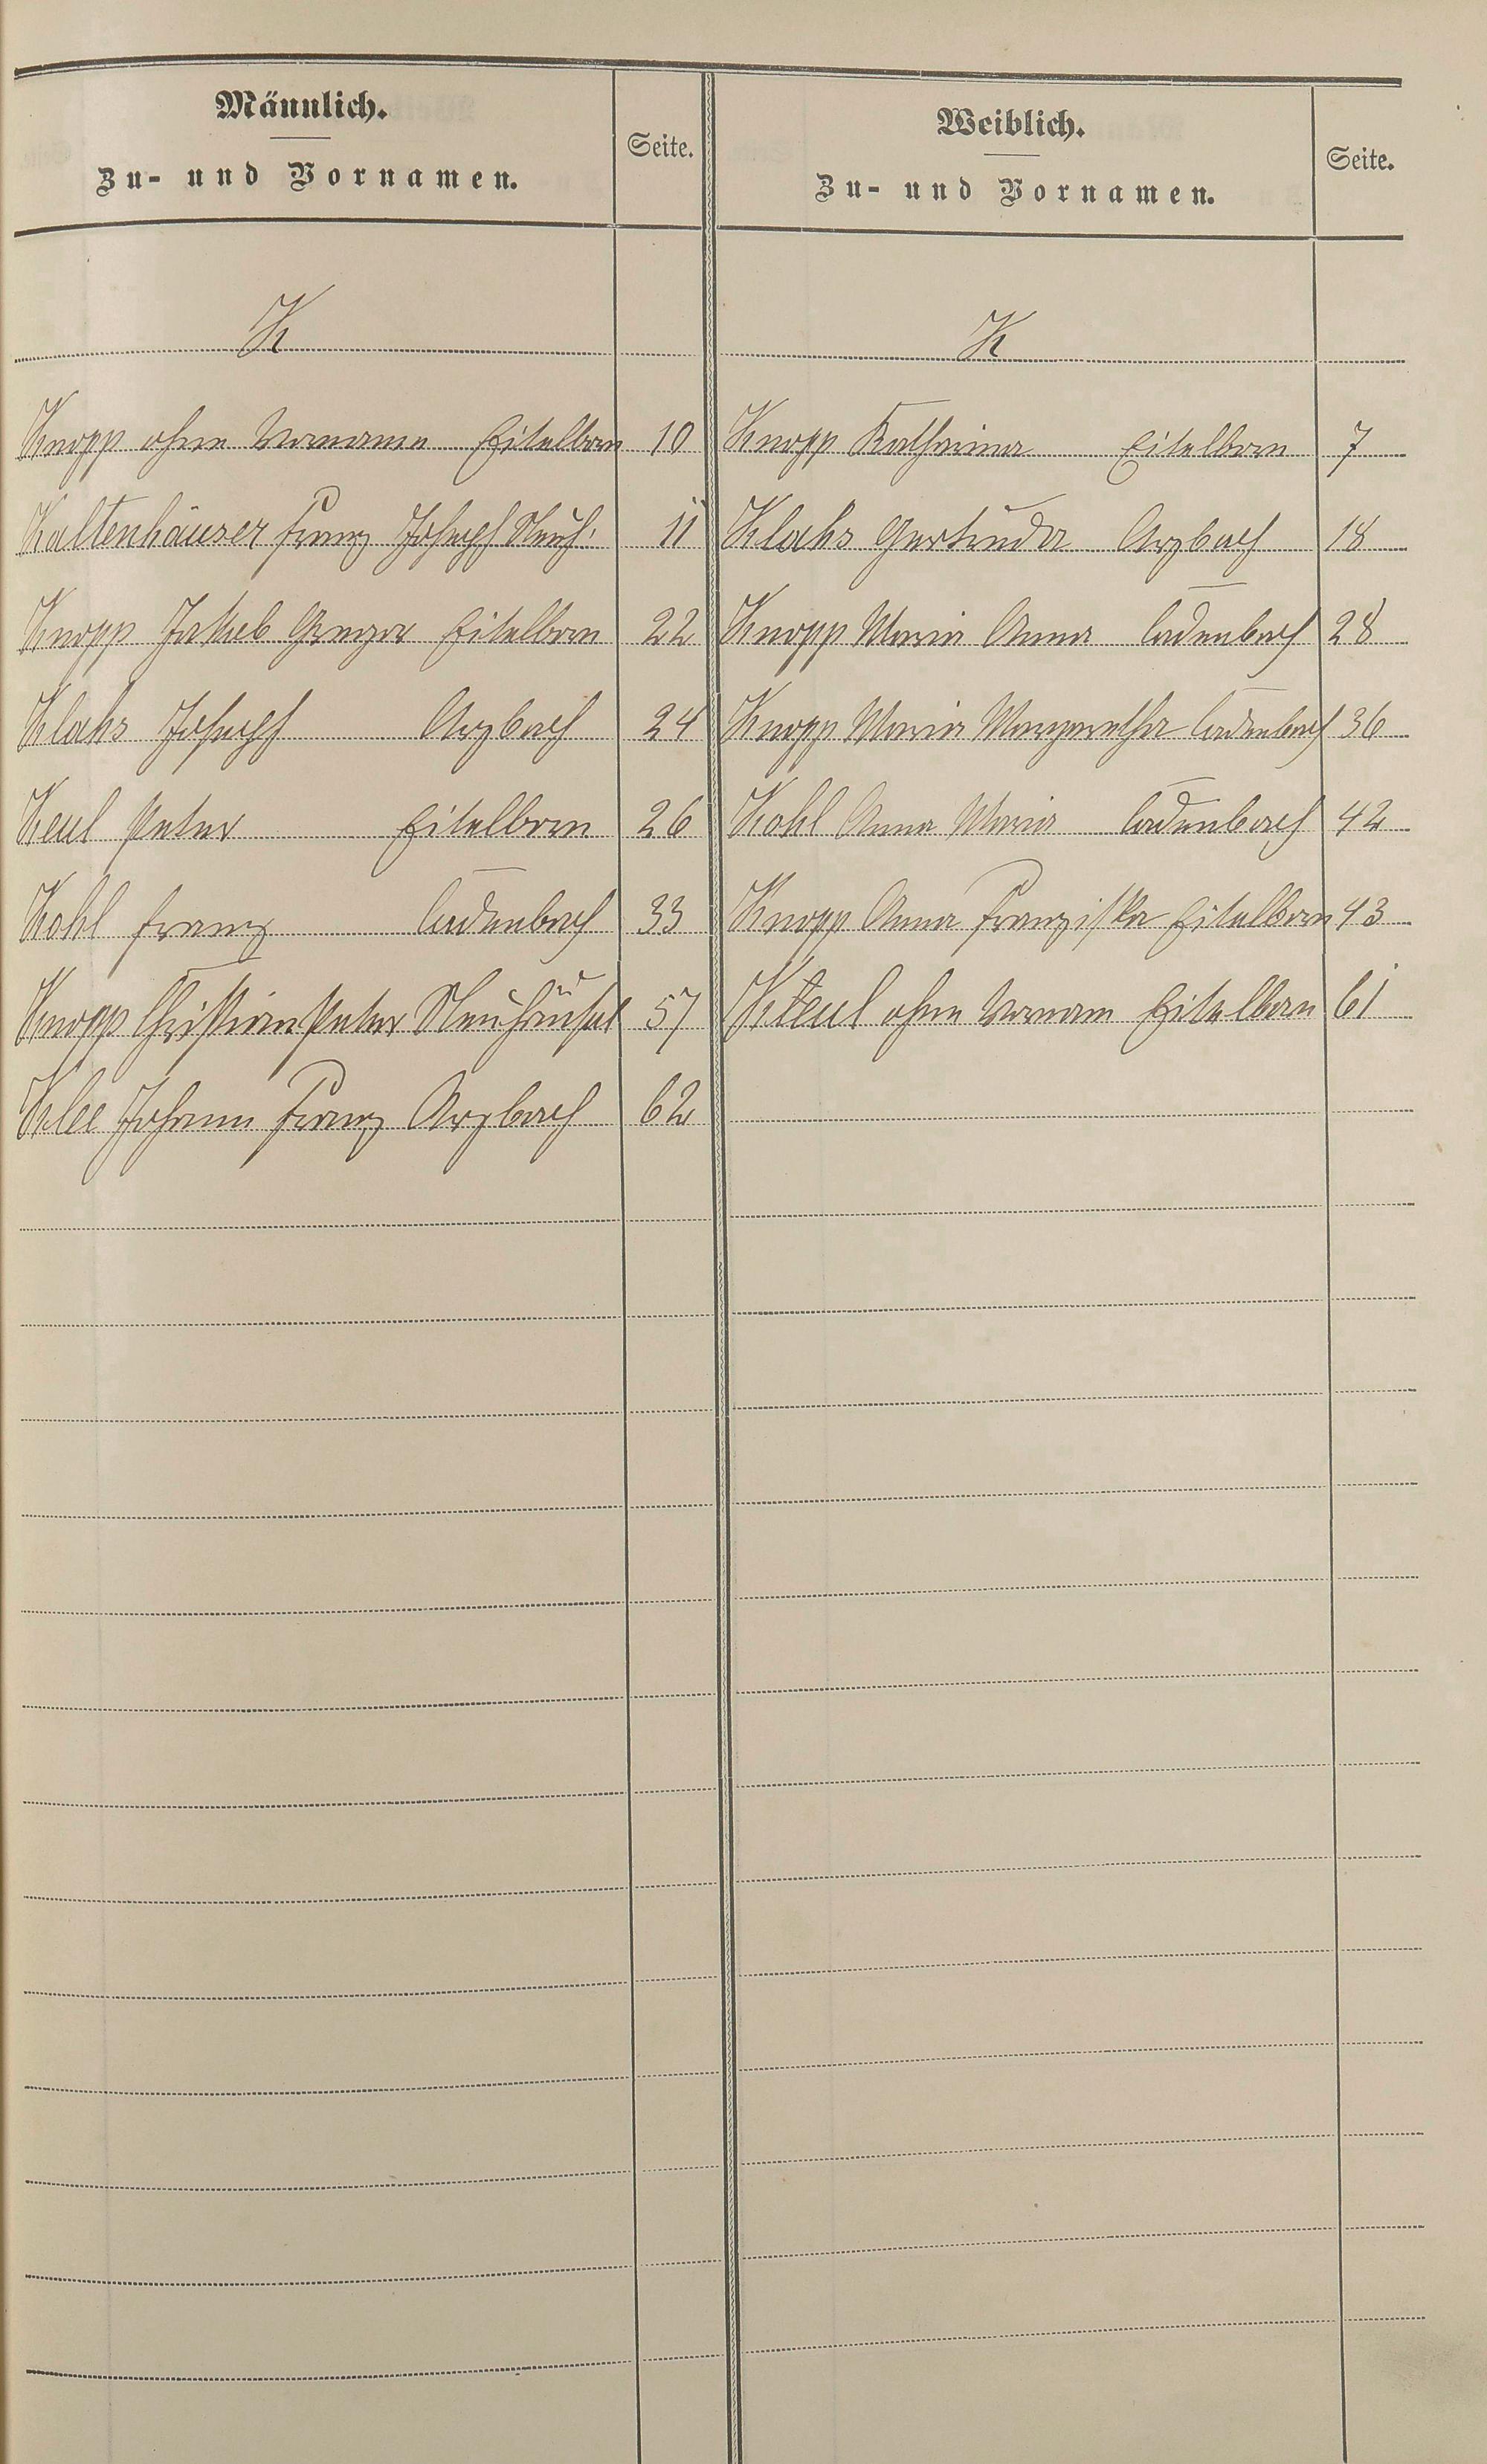 Männlich.
Zu- und Vornamen.
Seite.
Weiblich.
Zu- und Vornamen.
Seite.
K
K
Knopp ohne Vorname Eitelborn 10
Knopp Katharina Eitelborn 7
Kaltenhäuser Franz Joseph Neuh. 11
Klahs Gertruda Arzbach 18
Knopp Jakob Eitelborn 22
Knopp Maria Anna Cadenbach 28
Klahs Joseph Arzbach 24
Knopp Maria Margaretha Cadenbach 36
Keul Peter Eitelborn 26
Kohl Anna Maria Cadenbach 42
Kohl Franz Cadenbach 33
Knopp Anna Franziska Eitelborn 43
Knopp Christian Peter Neuhäusel 57
Keul ohne Vornam Eitelborn 61
Klee Johann Franz Arzbach 62